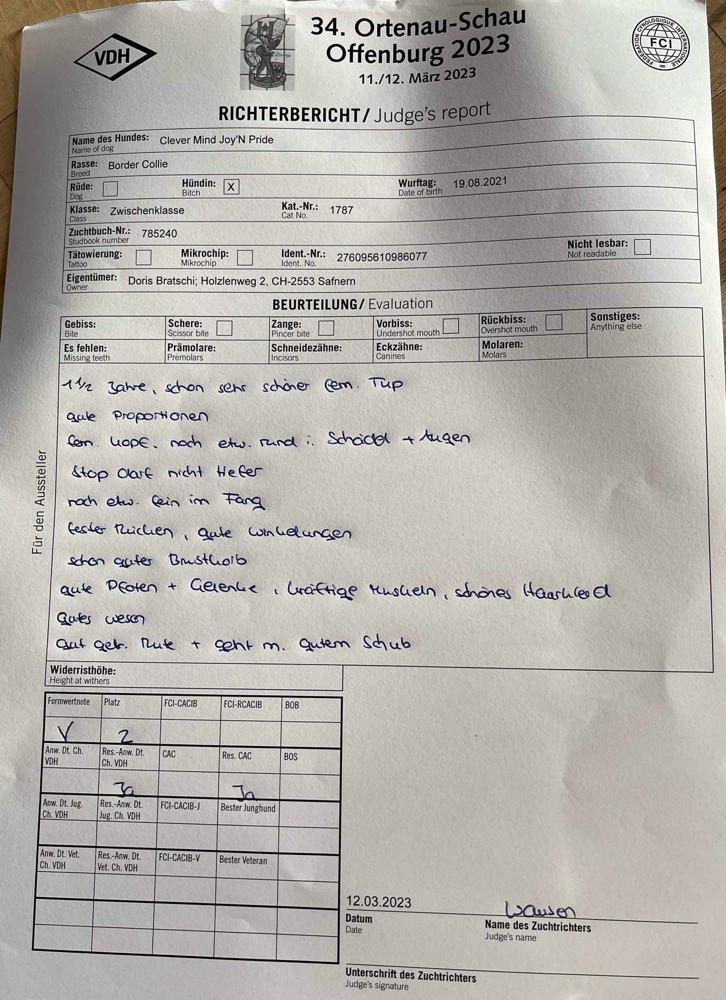 VDH
34. Ortenau-Schau
Offenburg 2023
11./12. März 2023
FEDERATION CYNOLOGIQUE INTERNATIONALE
FCI
RICHTERBERICHT/ Judge's report
Name des Hundes: Clever Mind Joy'N Pride
Name of dog
Rasse: Border Collie
Breed
Rüde: Hündin: X Wurftag: 19.08.2021
Dog Bitch Date of birth
Klasse: Zwischenklasse Kat.-Nr.: 1787
Class Cat No.
Zuchtbuch-Nr.: 785240
Studbook number
Tätowierung: Mikrochip: Ident.-Nr.: 276095610986077 Nicht lesbar:
Tattoo Mikrochip Ident. No. Not readable
Eigentümer: Doris Bratschi; Holzlenweg 2, CH-2553 Safnern
Owner
BEURTEILUNG/ Evaluation
Gebiss: Schere: Zange: Vorbiss: Rückbiss: Sonstiges:
Bite Scissor bite Pincer bite Undershot mouth Overshot mouth Anything else
Es fehlen: Prämolare: Schneidezähne: Eckzähne: Molaren:
Missing teeth Premolars Incisors Canines Molars
Für den Aussteller
1 1/2 Jahre, schon sehr schöner fem. Typ
gute Proportionen
fem. Kopf. noch etw. rund i. Schädel + Augen
Stop darf nicht tiefer
noch etw. fein im Fang
fester Rücken, gute Winkelungen
schon guter Brustkorb
gute Pfoten + Gelenke, kräftige Muskeln, schönes Haarkleid
Gutes wesen
Gut getr. Rute + geht m. gutem Schub
Widerristhöhe:
Height at withers
Formwertnote Platz FCI-CACIB FCI-RCACIB BOB
V 2
Anw. Dt. Ch. Res.-Anw. Dt. CAC Res. CAC BOS
VDH Ch. VDH
Ja Ja
Anw. Dt. Jug. Res.-Anw. Dt. FCI-CACIB-J Bester Junghund
Ch. VDH Jug. Ch. VDH
Anw. Dt. Vet. Res.-Anw. Dt. FCI-CACIB-V Bester Veteran
Ch. VDH Vet. Ch. VDH
12.03.2023
Datum Name des Zuchtrichters
Date Judge's name
Unterschrift des Zuchtrichters
Judge's signature